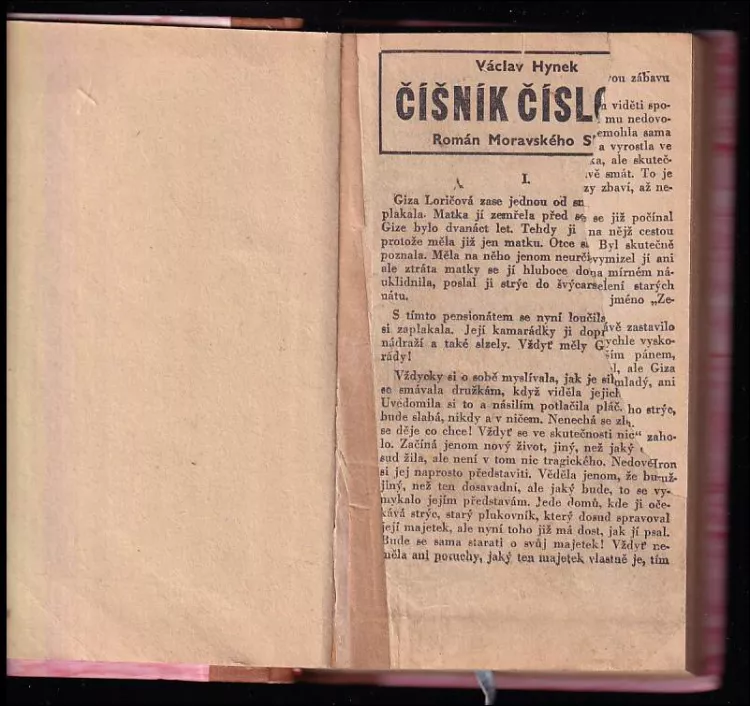 Václav Hynek
ČÍŠNÍK ČÍSLO
Román Moravského S
I.
Giza Loričová zase jednou od sr
plakala. Matka jí zemřela před se
Gize bylo dvanáct let. Tehdy ji
protože měla již jen matku. Otce s
poznala. Měla na něho jenom neurči
ale ztráta matky se jí hluboce do
uklidnila, poslal ji strýc do švýcar
nátu.
S tímto pensionátem se nyní loučila
si zaplakala. Její kamarádky ji dopr
nádraží a také slzely. Vždyť měly G
rády!
Vždycky si o sobě myslívala, jak je sil
se smávala družkám, když viděla jejich
Uvědomila si to a násilím potlačila pláč.
bude slabá, nikdy a v ničem. Nenechá se zl
se děje co chce! Vždyť se ve skutečnosti nic
lo. Začíná jenom nový život, jiný, než jaký
sud žila, ale není v tom nic tragického. Nedově
si jej naprosto představiti. Věděla jenom, že bu
jiný, než ten dosavadní, ale jaký bude, to se vy-
mykalo jejím představám. Jede domů, kde ji oče-
kává strýc, starý plukovník, který dosud spravoval
její majetek, ale nyní toho již má dost, jak jí psal.
Bude se sama starati o svůj majetek! Vždyť ne-
měla ani potuchy, jaký ten majetek vlastně je, tím
vou zábavu
n viděti spo-
mu nedovo-
emohla sama
a vyrostla ve
ka, ale skuteč-
vě smát. To je
zy zbaví, až ne-
se již počínal
na nějž cestou
Byl skutečně
vymizel jí ani
na mírném ná-
selení starých
jméno „Ze-
ávě zastavilo
rychle vysko-
ším pánem,
l, ale Giza
mladý, ani
ho strýc,
“ zaho-
Iron
muž-